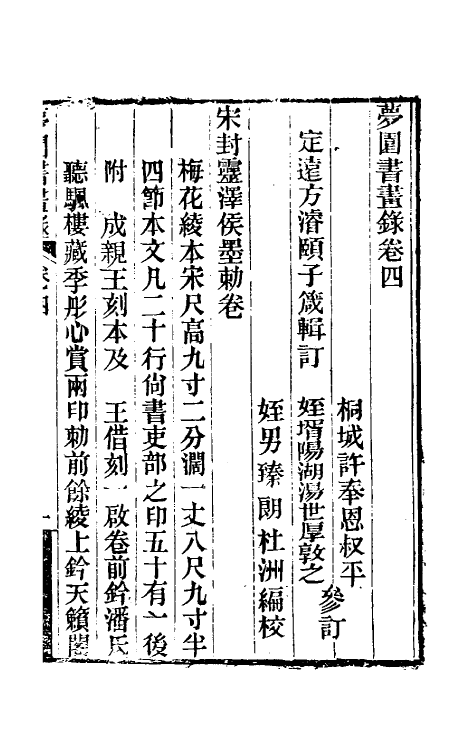 夢園書畫錄卷四
桐城許奉恩叔平
定遠方濬頤子箴輯訂 姪壻陽湖湯世厚敦之 參訂
姪男臻朗杜洲編校
宋封靈澤侯墨勅卷
梅花綾本宋尺高九寸二分濶一丈八尺九寸半
四節本文凡二十行尚書吏部之印五十有一後
附 成親王刻本及 王借刻一啟卷前鈐潘氏
聽颿樓藏季彤心賞兩印勅前餘綾上鈐天籟閣
夢園書畫錄 卷四 一